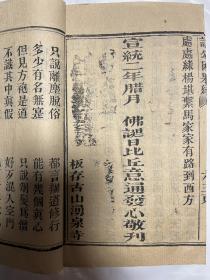 處處綠楊堪繫馬家家有路到西方
宣統二年腊月 佛誕日比丘意通發心敬刊
板存古山湧泉寺
只說離塵脫俗 都言道修行
多少有名無寔 能有幾個真心
但見方袍是道 只說剃髮為僧
不識其中真假 好歹混入空門